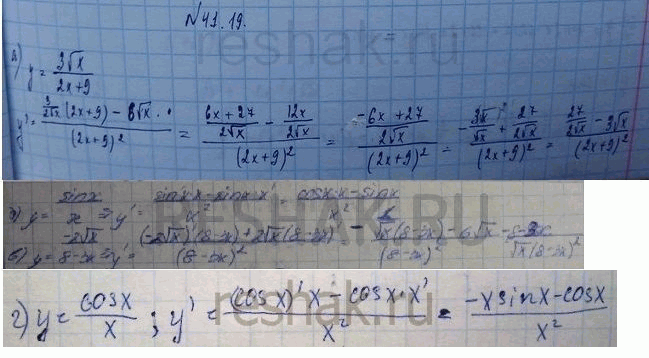 №41.19.
а) y = 3√x / (2x+9)
y' = (3/(2√x) · (2x+9) − 6√x) / (2x+9)² = ((6x+27)/(2√x) − 12x/(2√x)) / (2x+9)² = ((−6x+27)/(2√x)) / (2x+9)² = (−3x/√x + 27/(2√x)) / (2x+9)² = (27/(2√x) − 3√x) / (2x+9)²
y = sinx / x ⇒ y' = (sin'x·x − sinx·x') / x² = (cosx·x − sinx) / x²
y = −2√x / (8−3x) ⇒ y'
г) y = cosx / x ; y' = ((cosx)'x − cosx·x') / x² = (−x sinx − cosx) / x²
reshak.ru
RESHAK.RU
reshak.ru